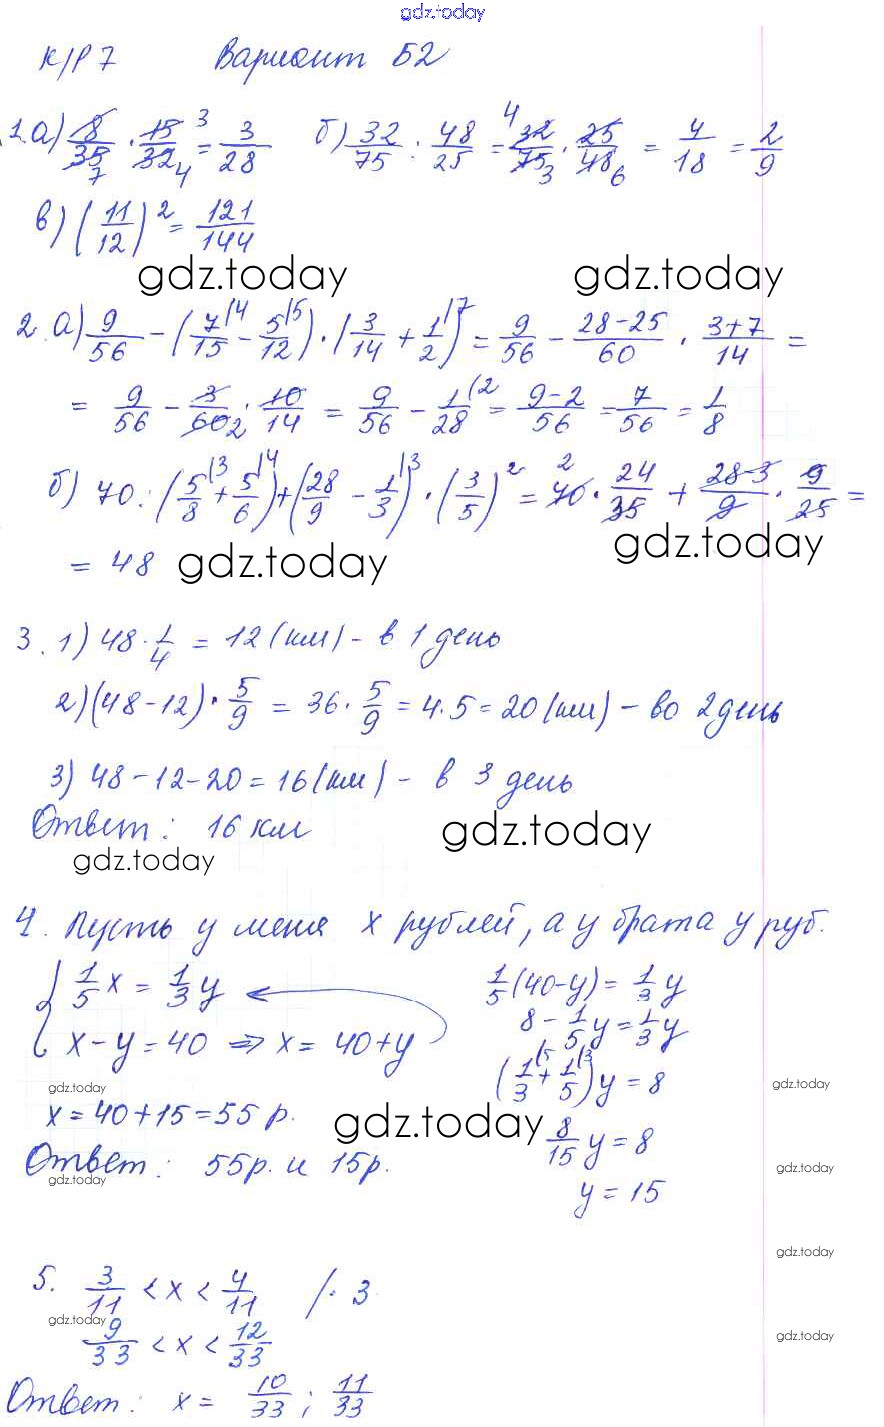 gdz.today
К/Р 7 Вариант Б2
1. а) 8/35 · 15/32 = 3/28 б) 32/75 : 48/25 = 32/75 · 25/48 = 4/18 = 2/9
в) (11/12)² = 121/144
gdz.today gdz.today
2. а) 9/56 - (7/15 - 5/12) · (3/14 + 1/2) = 9/56 - 28-25/60 · 3+7/14 =
= 9/56 - 3/60 · 10/14 = 9/56 - 1/28 = 9-2/56 = 7/56 = 1/8
б) 70 : (5/8 + 5/6) + (28/9 - 1/3) · (3/5)² = 70 · 24/35 + 28-3/9 · 9/25 =
= 48 gdz.today gdz.today
3. 1) 48 · 1/4 = 12 (км) - в 1 день
2) (48-12) · 5/9 = 36 · 5/9 = 4·5 = 20 (км) - во 2 день
3) 48-12-20 = 16 (км) - в 3 день
Ответ: 16 км gdz.today
gdz.today
4. Пусть у меня x рублей, а у брата y руб.
{ 1/5 x = 1/3 y 1/5 (40-y) = 1/3 y
x - y = 40 => x = 40+y 8 - 1/5 y = 1/3 y
gdz.today (1/3 + 1/5) y = 8 gdz.today
x = 40+15 = 55 р. gdz.today 8/15 y = 8
Ответ: 55р. и 15р. gdz.today
gdz.today y = 15
gdz.today
5. 3/11 < x < 4/11 /· 3
gdz.today gdz.today
9/33 < x < 12/33
Ответ: x = 10/33 ; 11/33